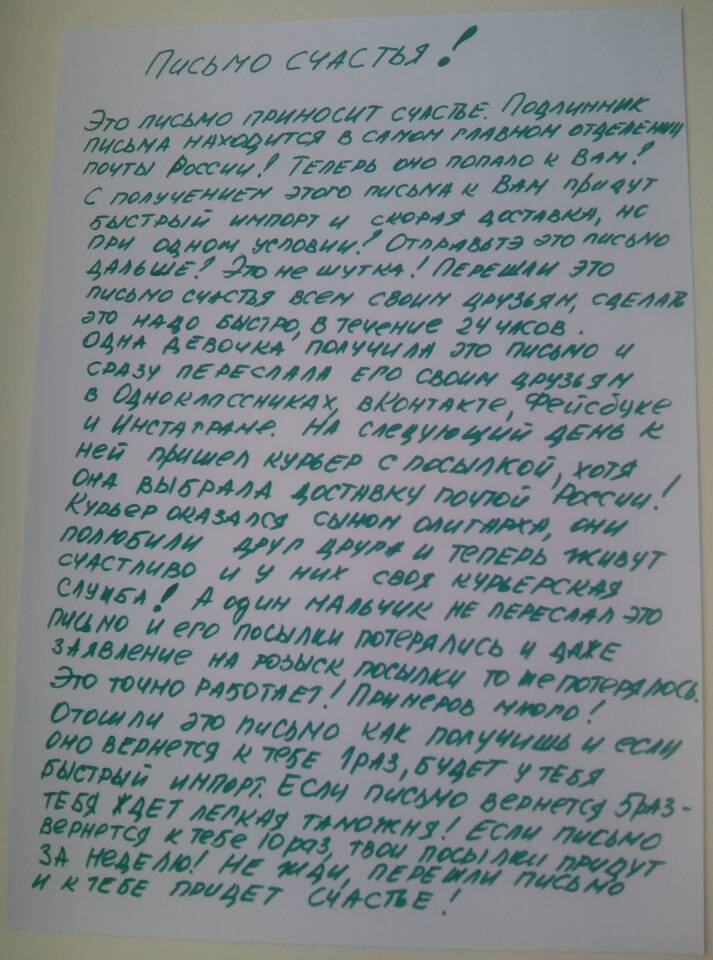 Письмо счастья!
Это письмо приносит счастье. Подлинник
письма находится в самом главном отделении
почты России! Теперь оно попало к Вам!
С получением этого письма к Вам придут
быстрый импорт и скорая доставка, но
при одном условии! Отправьтэ это письмо
дальше! Это не шутка! Перешли это
письмо счастья всем своим друзьям, сделать
это надо быстро, в течение 24 часов.
Одна девочка получила это письмо и
сразу переслала его своим друзьям
в Одноклассниках, вКонтакте, Фейсбуке
и Инстаграме. На следующий день к
ней пришел курьер с посылкой, хотя
она выбрала доставку почтой России!
Курьер оказался сыном олигарха, они
полюбили друг друга и теперь живут
счастливо и у них своя курьерская
служба! А один мальчик не переслал это
письмо и его посылки потерялись и даже
заявление на розыск посылки то же потерялось.
Это точно работает! Примеров много!
Отошли это письмо как получишь и если
оно вернется к тебе 1 раз, будет у тебя
быстрый импорт. Если письмо вернется 5 раз -
тебя ждет легкая таможня! Если письмо
вернется к тебе 10 раз, твои посылки придут
за неделю! Не жди, перешли письмо
и к тебе придет счастье!